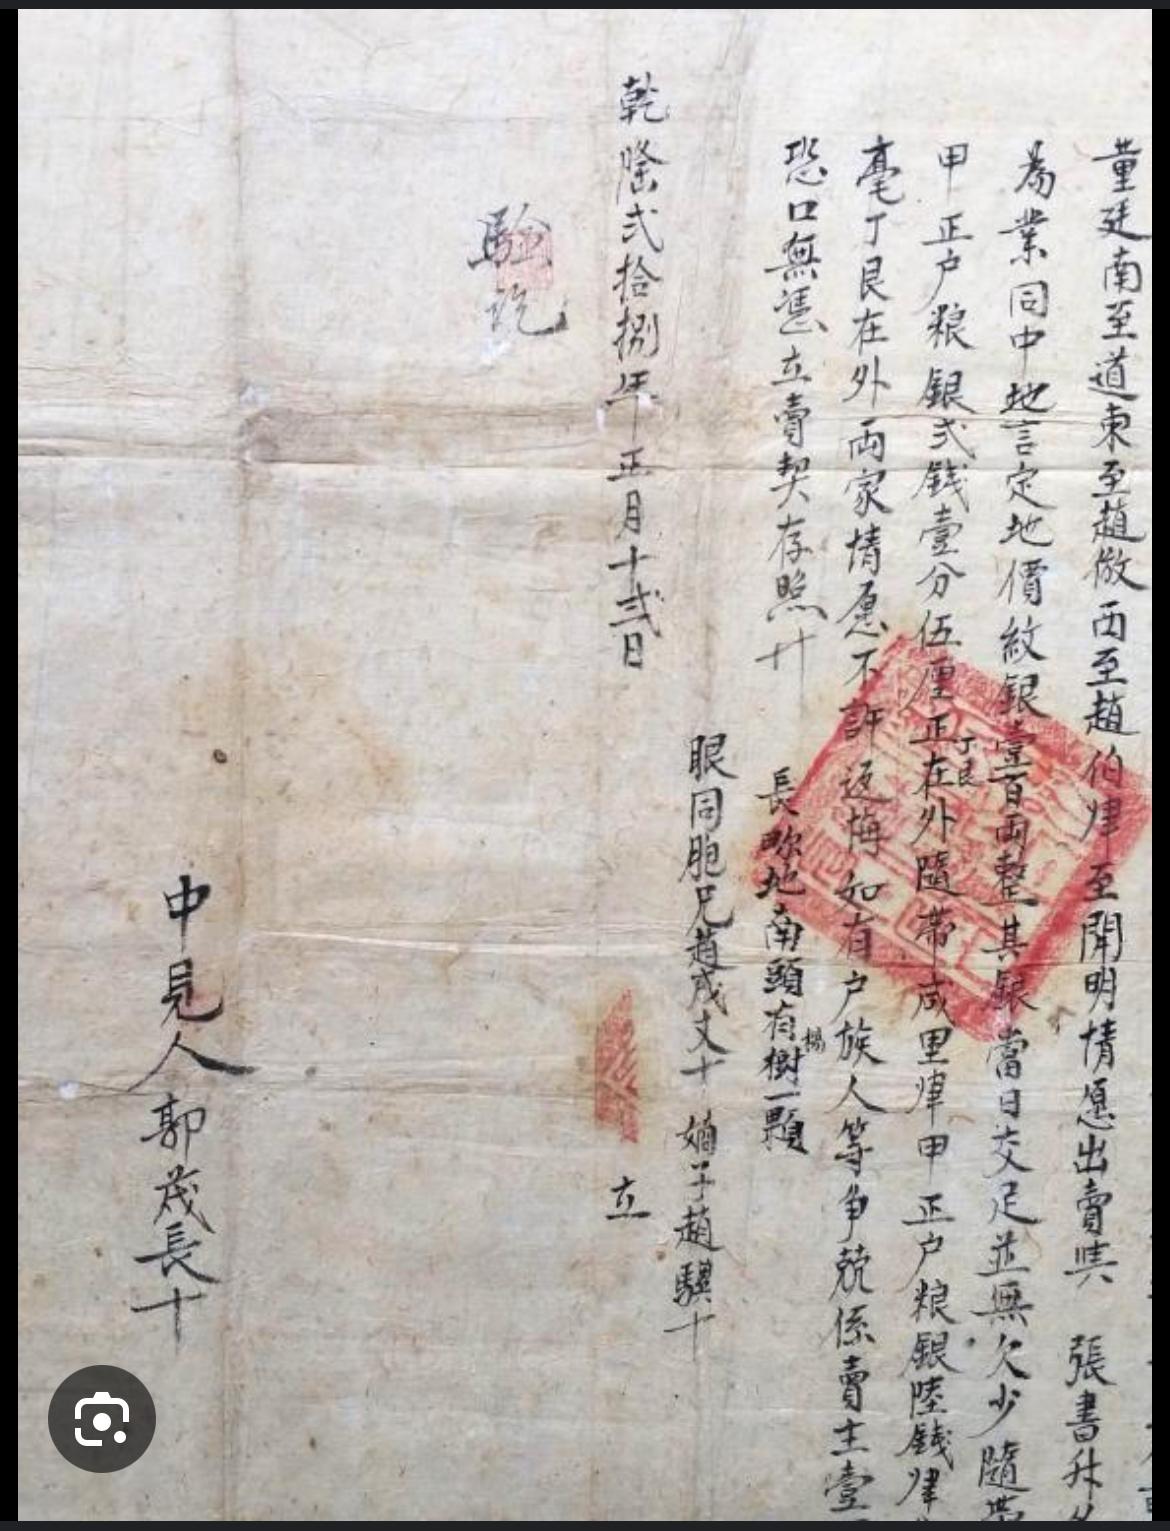 董廷南至道東至趙倣西至趙伯肆至開明情愿出賣與 張書升名
為業同中地言定地價紋銀壹百両整其銀當日交足並無欠少隨帶
甲正户粮銀弍錢壹分伍厘正在外隨帶咸里肆甲正户粮銀陸錢肆
丁艮
毫丁艮在外両家情愿不許返悔如有户族人等争兢係賣主壹
恐口無憑立賣契存照
長畛地南頭有樹一顆
楊
眼同胞兄趙成文十 嫡子趙騏十
乾隆弍拾捌年正月十弍日 立
驗訖
中見人郭茂長十